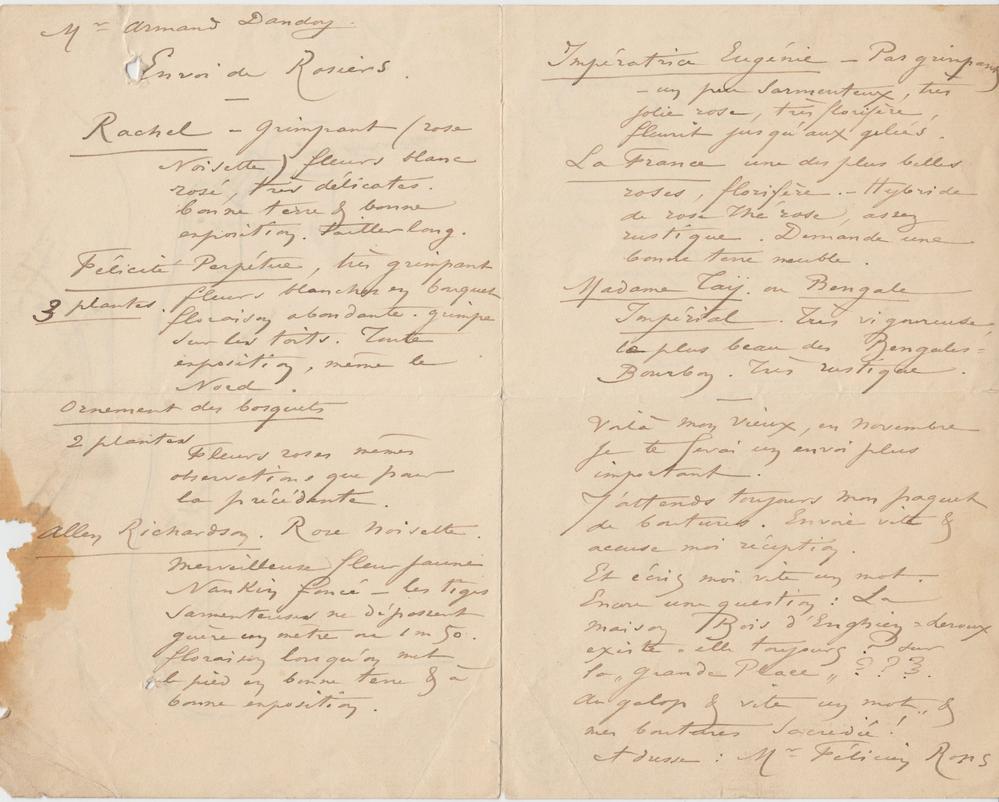 Mr Armand Dandoy.
Envoi de Rosiers.
Rachel – grimpant (rose
Noisette) fleurs blanc
rosé, très délicates.
bonne terre & bonne
exposition. tailler long.
Félicité Perpétue, très grimpant
3 plantes. fleurs blanches en bouquet
floraison abondante. grimpe
sur les toits. Toute
exposition, même le
Nord.
Ornement des bosquets
2 plantes
Fleurs roses mêmes
observations que pour
la précédente.
Allen Richardson. Rose Noisette.
merveilleuse fleur jaune
Nankin foncé – les tiges
sarmenteuses ne dépassent
guère un mètre ou 1 m 50.
floraison lorsqu'on met
le pied en bonne terre & à
bonne exposition.
Impératrice Eugénie – Pas grimpant
– un peu sarmenteux, très
jolie rose, très florifère,
fleurit jusqu'aux gelées.
La France une des plus belles
roses, florifère. – Hybride
de rose Thé rose, assez
rustique. Demande une
bonne terre meuble.
Madame Taij. ou Bengale
Impérial. Très vigoureuse
le plus beau des Bengales-
Bourbon. Très rustique.
Voilà mon vieux, en novembre
je te ferai un envoi plus
important.
J'attends toujours mon paquet
de boutures. Envoie vite &
accuse moi réception.
Et écris moi vite un mot.
Encore une question : La
maison Bois d'Enghien = deroux
existe-elle toujours ? sur
la „Grande Place„ ? ? ?.
Au galop & vite un mot, &
mes boutures Sacredié !
Adresse : Mr Félicien Rops